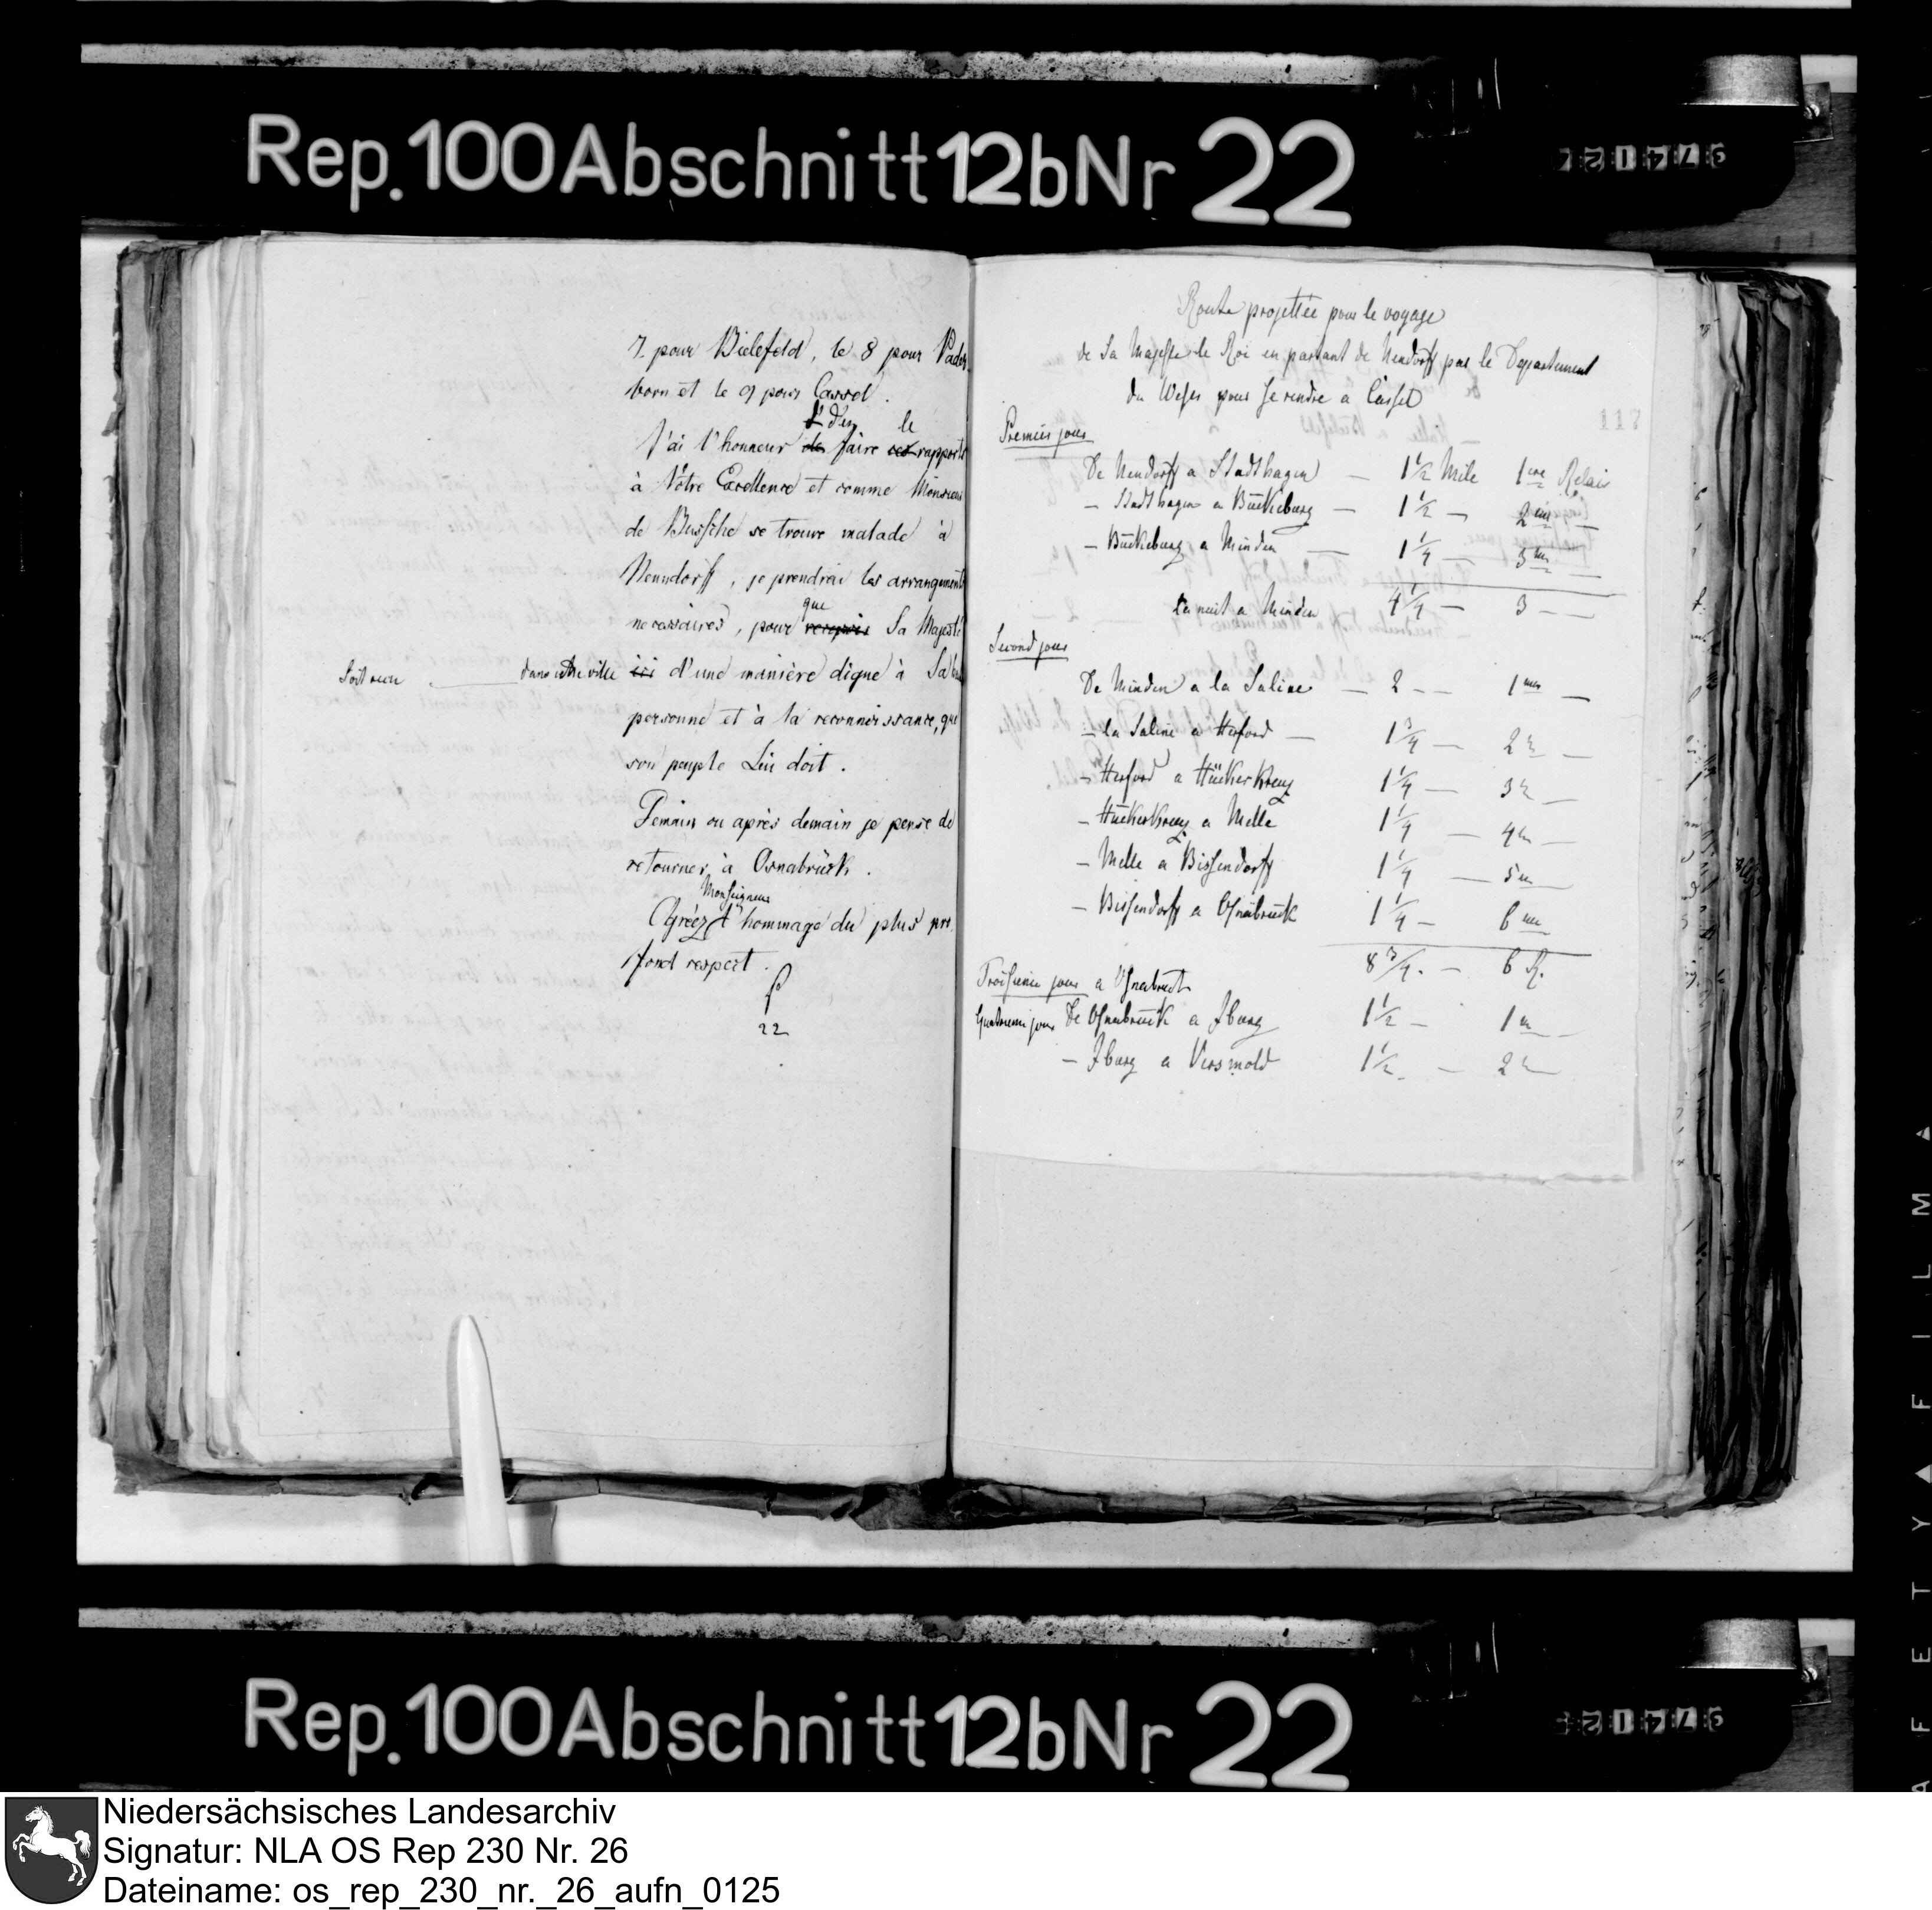 Rep. 100 Abschnitt 12b Nr 22
7. pour Bielefeld, le 8 pour Pader-
born et le 9 pour Cassel.
J'ai l'honneur de d'en faire ces le rapports
à Vôtre Excellence et comme Monsieur
de Bussche se trouve malade à
Nenndorff, je prendrai les arrangements
necessaires, pour recevoir que Sa Majesté
soit reçu dans cette ville ici d'une manière digne à Sa
personne et à la reconnoissance, que
son peuple Lui doit.
Demain ou après demain je pense de
retourner à Osnabrück.
Agréez Monseigneur l'hommage du plus pro-
fond respect.
22
118
Route projettée pour le voyage
de Sa Majeste le Roi en partant de Nendorff par le Departement
du Weser pour se rendre a Cassel
Premier jour
De Nendorff a Stadthagen — 1½ Mile 1re Relais
— Stadthagen a Bückeburg — 1½ — 2me —
— Bückeburg a Minden — 1¼ — 3me —
la nuit a Minden 4¼ — 3 —
Second jour
De Minden a la Saline — 2 — 1re —
— la Saline a Herford — 1¾ — 2e —
— Herford a Hückerkreuz 1¼ — 3e —
— Hückerkreuz a Melle 1¼ — 4e —
— Melle a Bissendorff 1¼ — 5me —
— Bissendorff a Osnabrück 1¼ — 6me
8¾ — 6 R.
Troisieme jour a Osnabruck
Quatrieme jour De Osnabrück a Iburg 1½ — 1re —
— Iburg a Versmold 1½ — 2e —
Rep. 100 Abschnitt 12b Nr 22
Niedersächsisches Landesarchiv
Signatur: NLA OS Rep 230 Nr. 26
Dateiname: os_rep_230_nr._26_aufn_0125